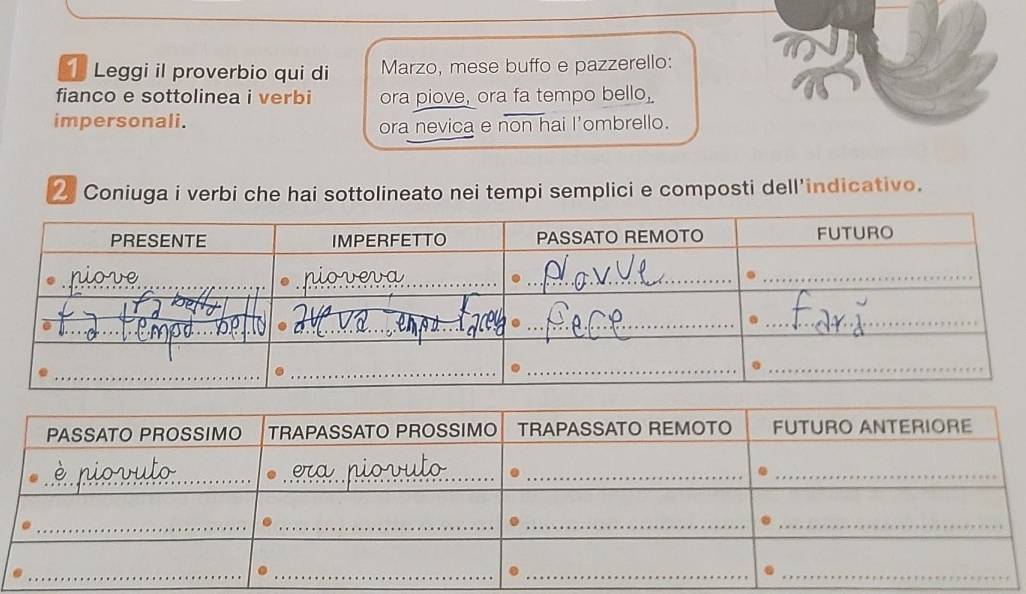 1 Leggi il proverbio qui di
fianco e sottolinea i verbi
impersonali.
Marzo, mese buffo e pazzerello:
ora piove, ora fa tempo bello,
ora nevica e non hai l'ombrello.
2 Coniuga i verbi che hai sottolineato nei tempi semplici e composti dell'indicativo.
PRESENTE IMPERFETTO PASSATO REMOTO FUTURO
piove pioveva piovve
fa bello
fa tempo bello aveva tempo faceva fece farà
PASSATO PROSSIMO TRAPASSATO PROSSIMO TRAPASSATO REMOTO FUTURO ANTERIORE
è piovuto era piovuto